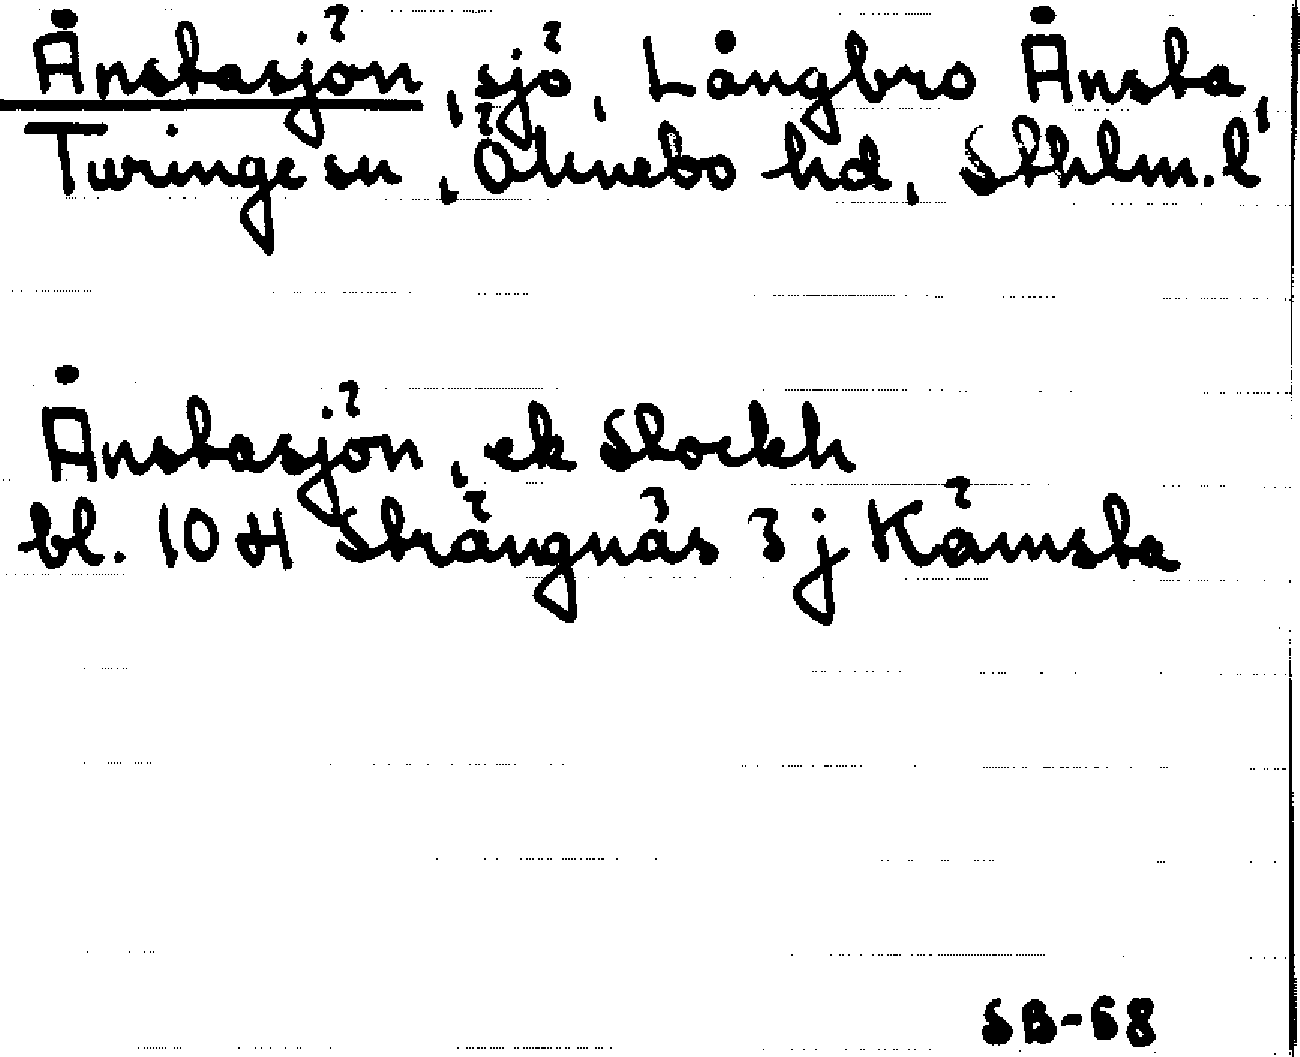 Ånstasjön, sjö, Långbro Ånsta,
Turinge sn, Öknebo hd, Sthlm.l
Ånstasjön, ek Stockh
bl. 10 H Strängnäs 3 j Kämsta
SB-68